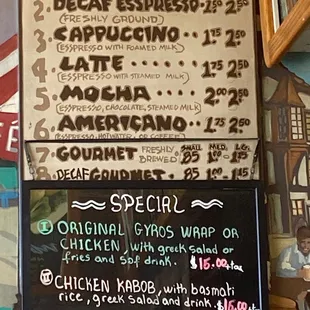 2. DECAF ESSPRESSO 1.50 2.50
(FRESHLY GROUND)
3. CAPPUCCINO 1.75 2.50
(ESSPRESSO WITH FOAMED MILK)
4. LATTE 1.75 2.50
(ESSPRESSO WITH STEAMED MILK)
5. MOCHA 2.00 2.50
(ESSPRESSO, CHOCOLATE, STEAMED MILK)
6. AMERICANO 1.75 2.50
(ESSPRESSO, HOT WATER, OR COFFEE)
SMALL MED. LRG.
7 GOURMET FRESHLY BREWED .85 1.00 1.25
8. DECAF GOURMET .85 1.15 1.45
SPECIAL
I ORIGINAL GYROS WRAP OR
CHICKEN, with greek salad or
fries and 5of drink. $15.00+tax
II CHICKEN KABOB, with basmati
rice, greek salad and drink. $15.00